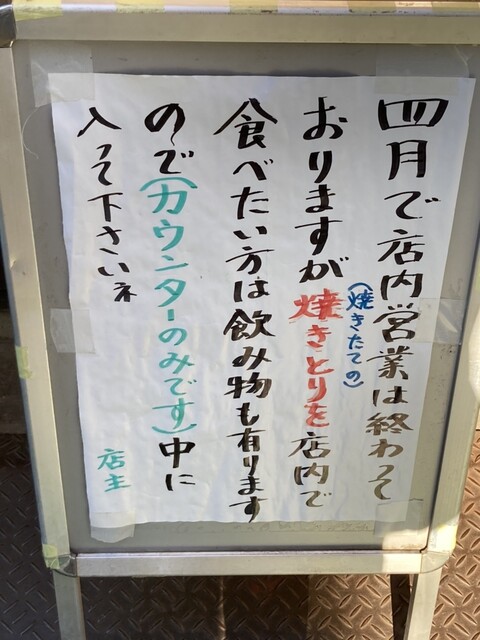 四月で店内営業は終わって
おりますが(焼きたての)焼きとりを店内で
食べたい方は飲み物も有ります
ので(カウンターのみです)中に
入って下さいネ
店主